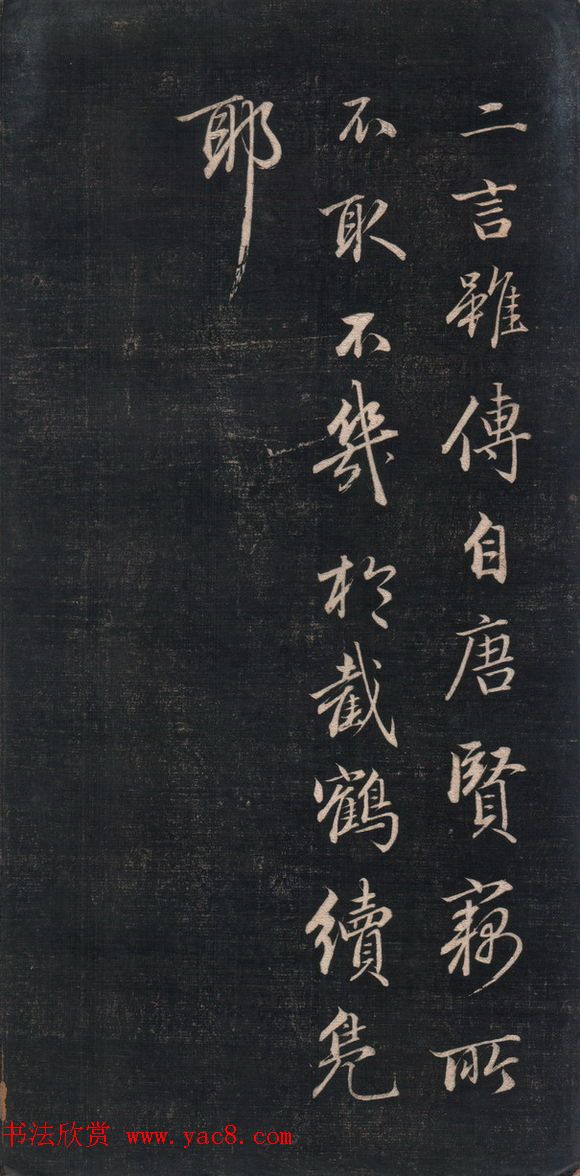 二言雖傳自唐賢竊所
不取不幾於截鶴續鳧
耶
书法欣赏 www.yac8.com